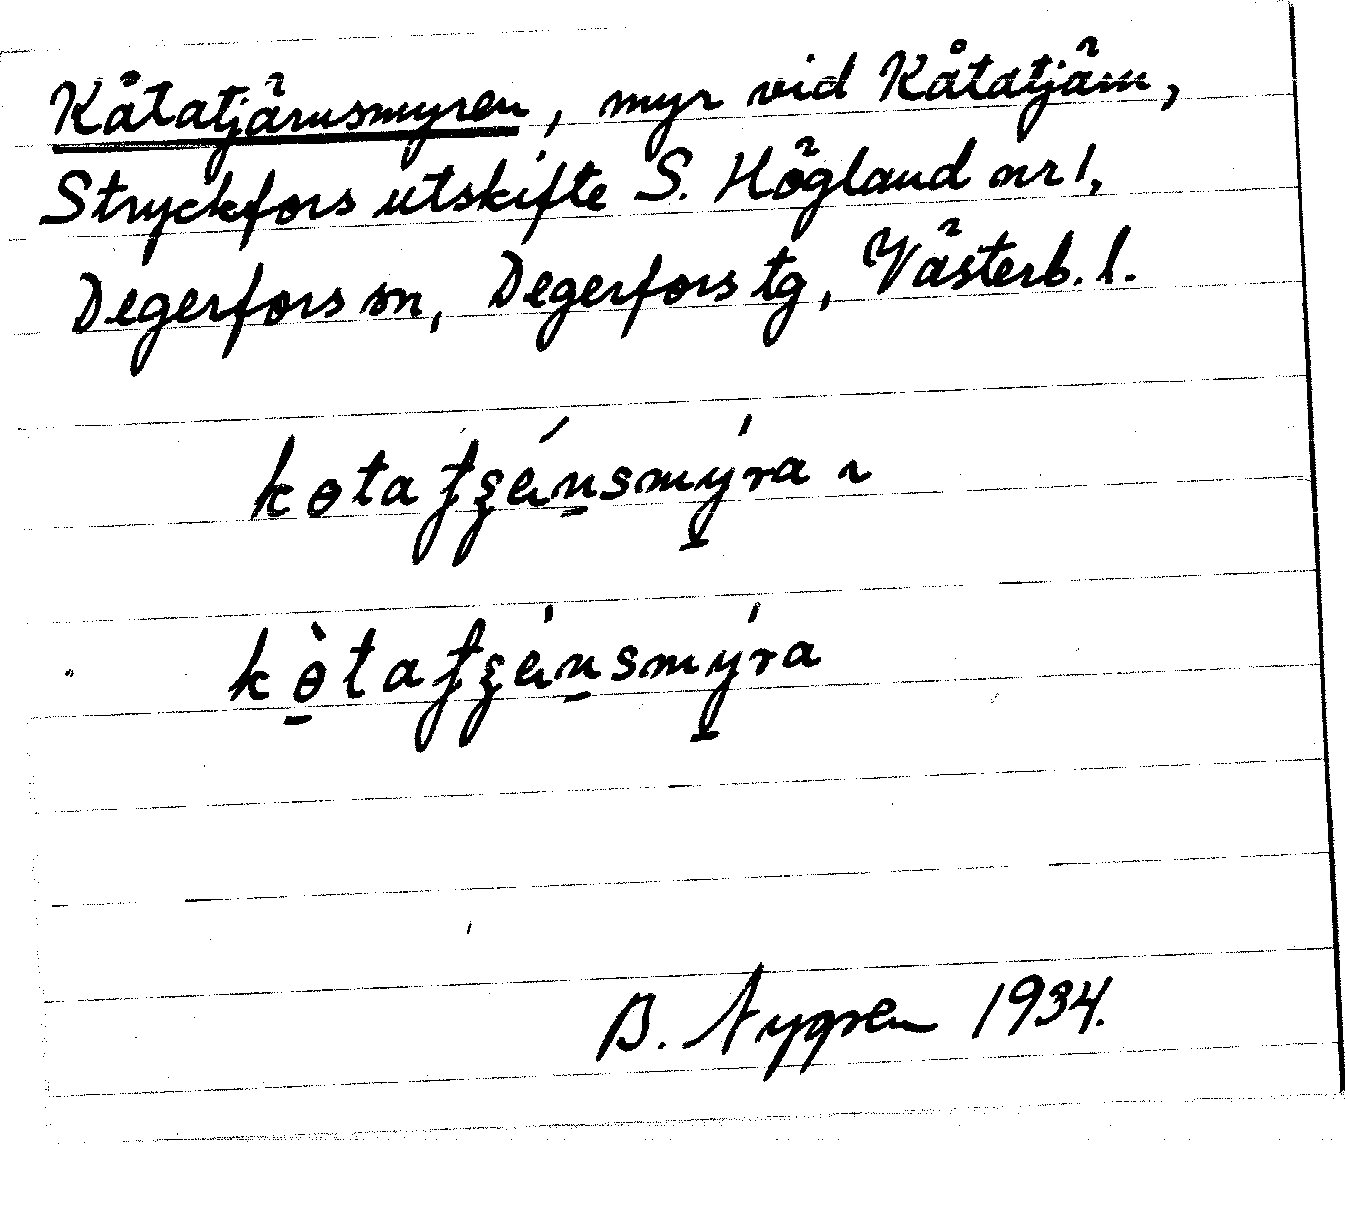 Kåtatjärnsmyren, myr vid Kåtatjärn,
Stryckfors utskifte S. Högland nr 1,
Degerfors sn, Degerfors tg, Västerb. l.
B. Nygren 1934.